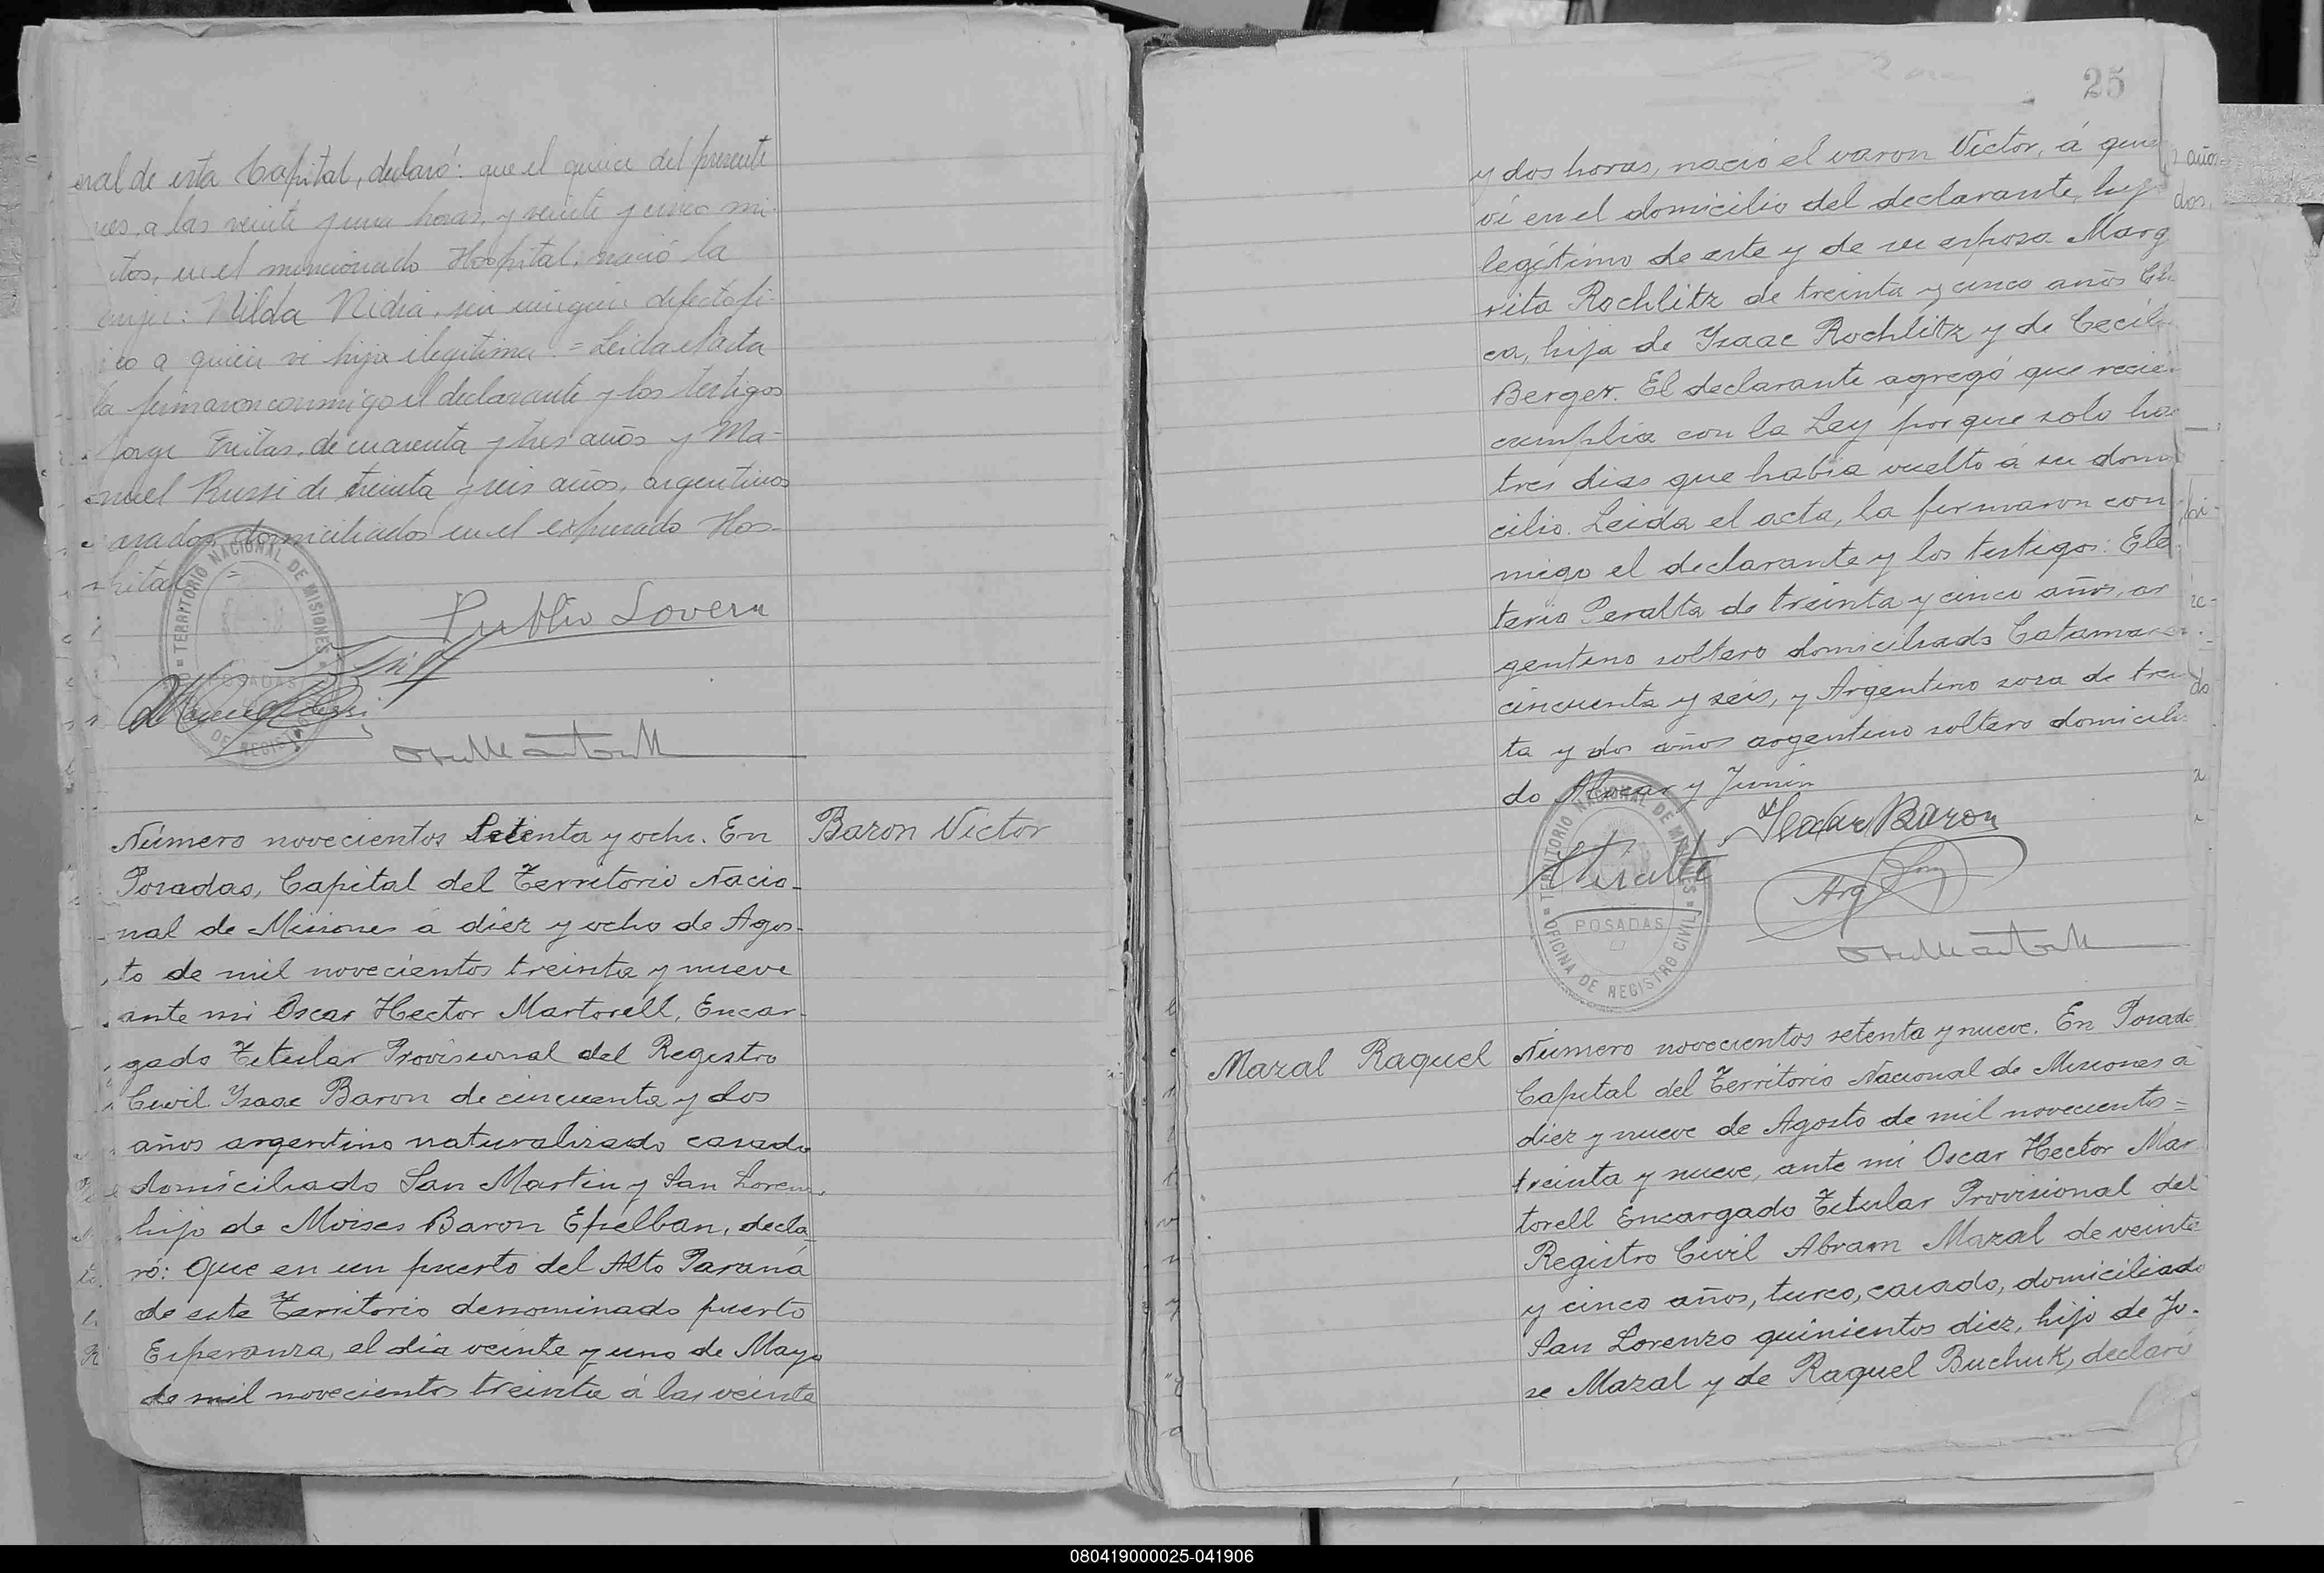 eral de esta Capital, declaró: que el quince del presente
mes, a las veinte y una horas, y veinte y cinco mi-
utos, en el mencionado Hospital, nació la
mujer: Nilda Nidia, sin ningun defecto fi-
ico a quien vi hija ilegitima = Leida el acta
la firmaron conmigo el declarante y los testigos
Jorge Freitas, de cuarenta y tres años y Ma-
nuel Russi de treinta y seis años, argentinos
casados domiciliados en el expresado Hos-
pital =
TERRITORIO NACIONAL DE MISIONES
POSADAS
DE REGISTRO
Publio Lovera
Baron Victor
Número novecientos setenta y ocho. En
Posadas, Capital del Territorio Nacio-
nal de Misiones á diez y ocho de Agos-
to de mil novecientos treinta y nueve
ante mi Oscar Hector Martorell, Encar-
gado Titular Provisional del Registro
Civil Ysaac Baron de cincuenta y dos
años argentino naturalizado casado
domiciliado San Martin y San Loren
hijo de Moises Baron Epelban, decla
ró: Que en un puerto del Alto Paraná
de este Territorio denominado puerto
Esperanza, el dia veinte y uno de Mayo
de mil novecientos treinta á las veinte
25
y dos horas, nació el varon Victor, á quien
vi en el domicilio del declarante, hijo
legitimo de este y de su esposa Marg
rita Rochlitz de treinta y cinco años Ch
ca, hija de Ysaac Rochlitz y de Cecil
Berger. El declarante agregó que recie
cumplia con la Ley por que solo hac
tres dias que habia vuelto á su domi
cilio. Leida el acta, la firmaron con
migo el declarante y los testigos: Ele
terio Peralta de treinta y cinco años, ar
gentino soltero domiciliado Catamarca
cincuenta y seis, y Argentino sosa de trein
ta y dos años argentino soltero domicilia
do Alvear y Junin
TERRITORIO NACIONAL DE MISIONES
POSADAS
OFICINA DE REGISTRO CIVIL
Isaac Baron
Mazal Raquel
Número novecientos setenta y nueve. En Posada
Capital del Territorio Nacional de Misiones á
diez y nueve de Agosto de mil novecientos =
treinta y nueve, ante mi Oscar Hector Mar
torell Encargado Titular Provisional del
Registro Civil Abram Mazal de veinte
y cinco años, turco, casado, domiciliado
San Lorenzo quinientos diez, hijo de Jo-
se Mazal y de Raquel Buchuk, declaró
080419000025-041906